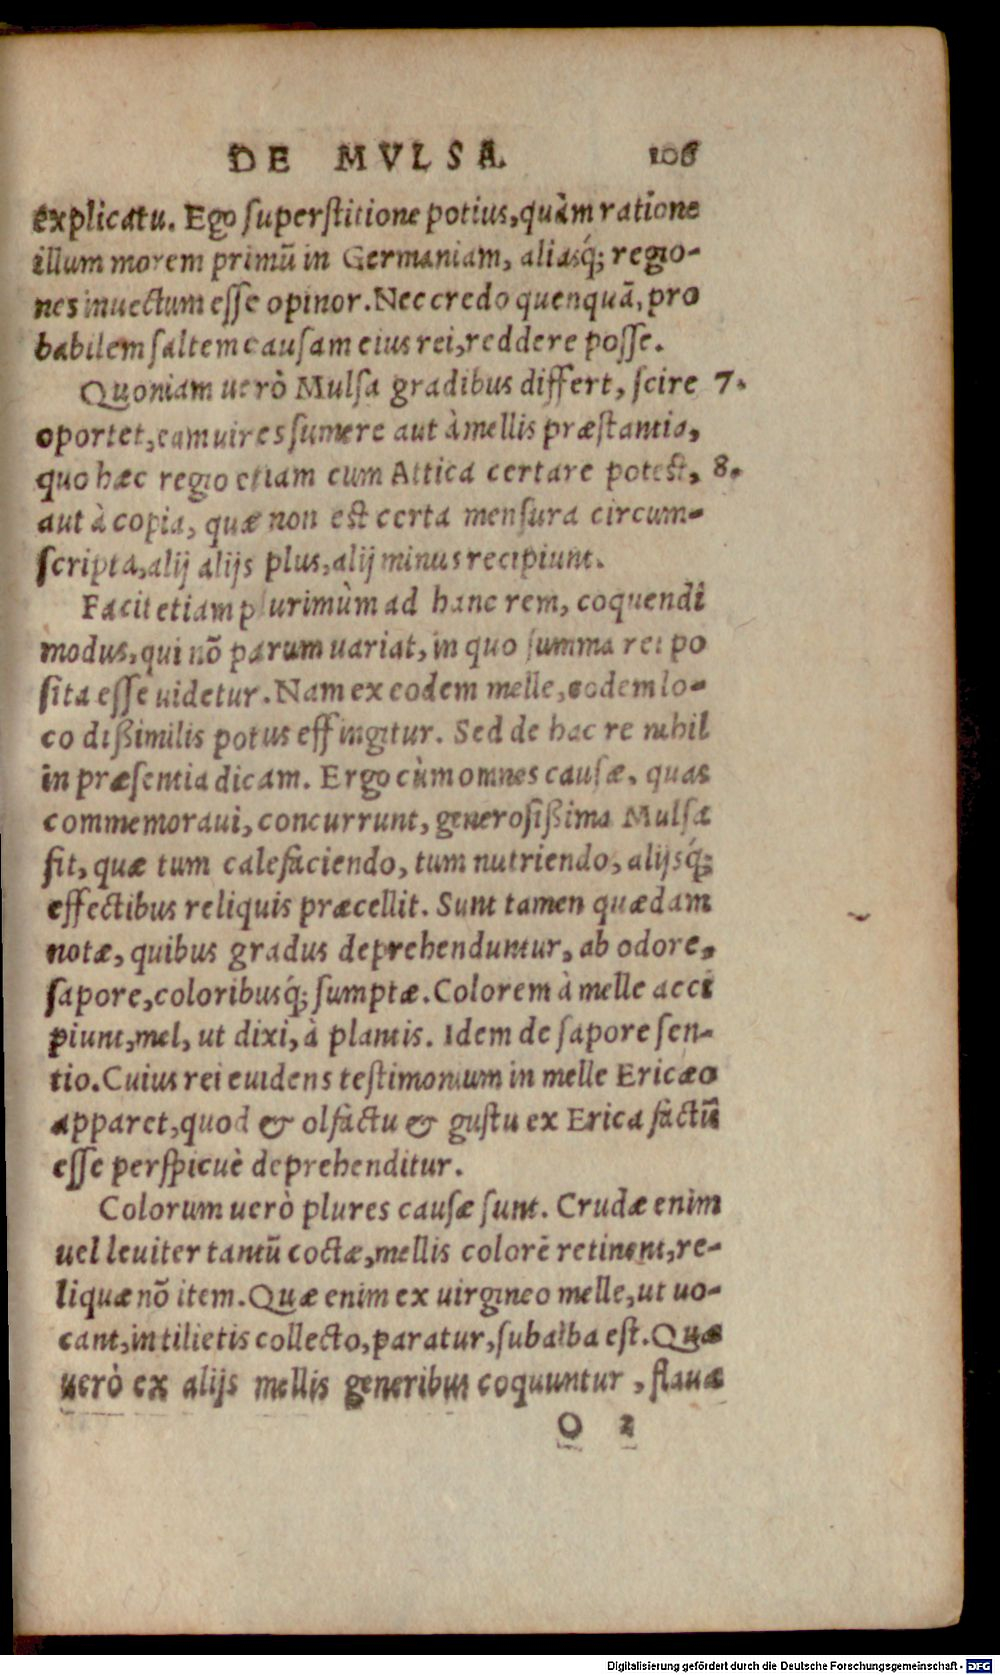 DE MVLSA. 106
explicatu. Ego superstitione potius, quàm ratione
illum morem primũ in Germaniam, aliasq́; regio-
nes inuectum esse opinor. Nec credo quenquã, pro
babilem saltem causam eius rei, reddere posse.
Quoniam uerò Mulsa gradibus differt, scire 7.
oportet, eam uires sumere aut à mellis præstantia,
quo hæc regio etiam cum Attica certare potest, 8.
aut à copia, quæ non est certa mensura circum-
scripta, alij alijs plus, alij minus recipiunt.
Facit etiam plurimùm ad hanc rem, coquendi
modus, qui nõ parum uariat, in quo summa rei po
sita esse uidetur. Nam ex eodem melle, eodem lo-
co dißimilis potus effingitur. Sed de hac re nihil
in præsentia dicam. Ergo cùm omnes causæ, quas
commemoraui, concurrunt, generosißima Mulsa
fit, quæ tum calefaciendo, tum nutriendo, alijsq́;
effectibus reliquis præcellit. Sunt tamen quædam
notæ, quibus gradus deprehenduntur, ab odore,
sapore, coloribusq́; sumptæ. Colorem à melle acci
piunt, mel, ut dixi, à plantis. Idem de sapore sen-
tio. Cuius rei euidens testimonium in melle Ericæo
apparet, quod & olfactu & gustu ex Erica factũ
esse perspicuè deprehenditur.
Colorum uerò plures causæ sunt. Crudæ enim
uel leuiter tantũ coctæ, mellis colorẽ retinent, re-
liquæ nõ item. Quæ enim ex uirgineo melle, ut uo-
cant, in tilietis collecto, paratur, subalba est. Quæ
uerò ex alijs mellis generibus coquuntur, flauæ
O 2
Digitalisierung gefördert durch die Deutsche Forschungsgemeinschaft - DFG